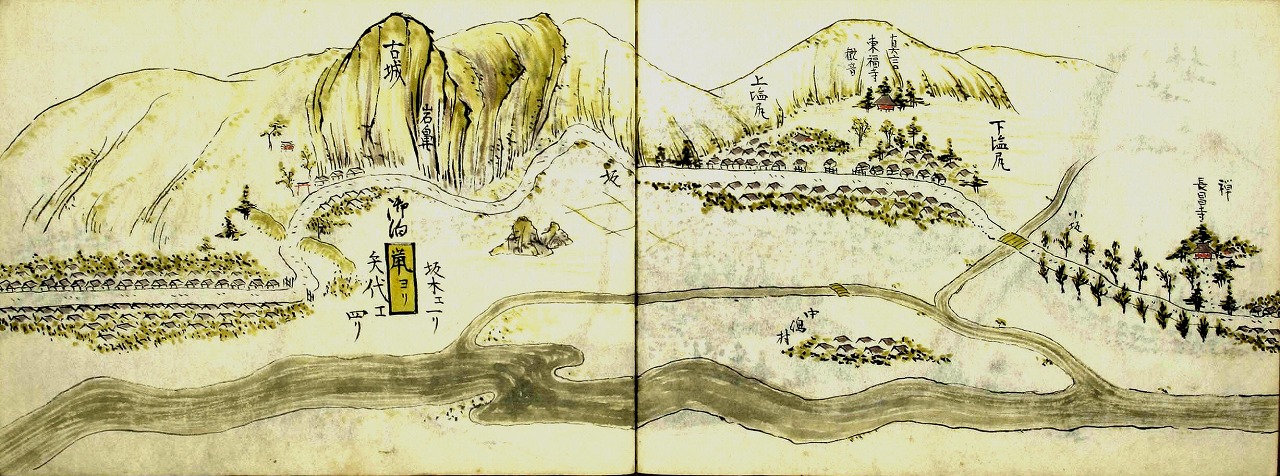 禅
長昌寺
小坂
下塩尻
真言
東福寺
観音
上塩尻
中嶋
村
坂
坂木エ一リ
御泊
鼠ヨリ
矢代エ
四リ
岩鼻
古城